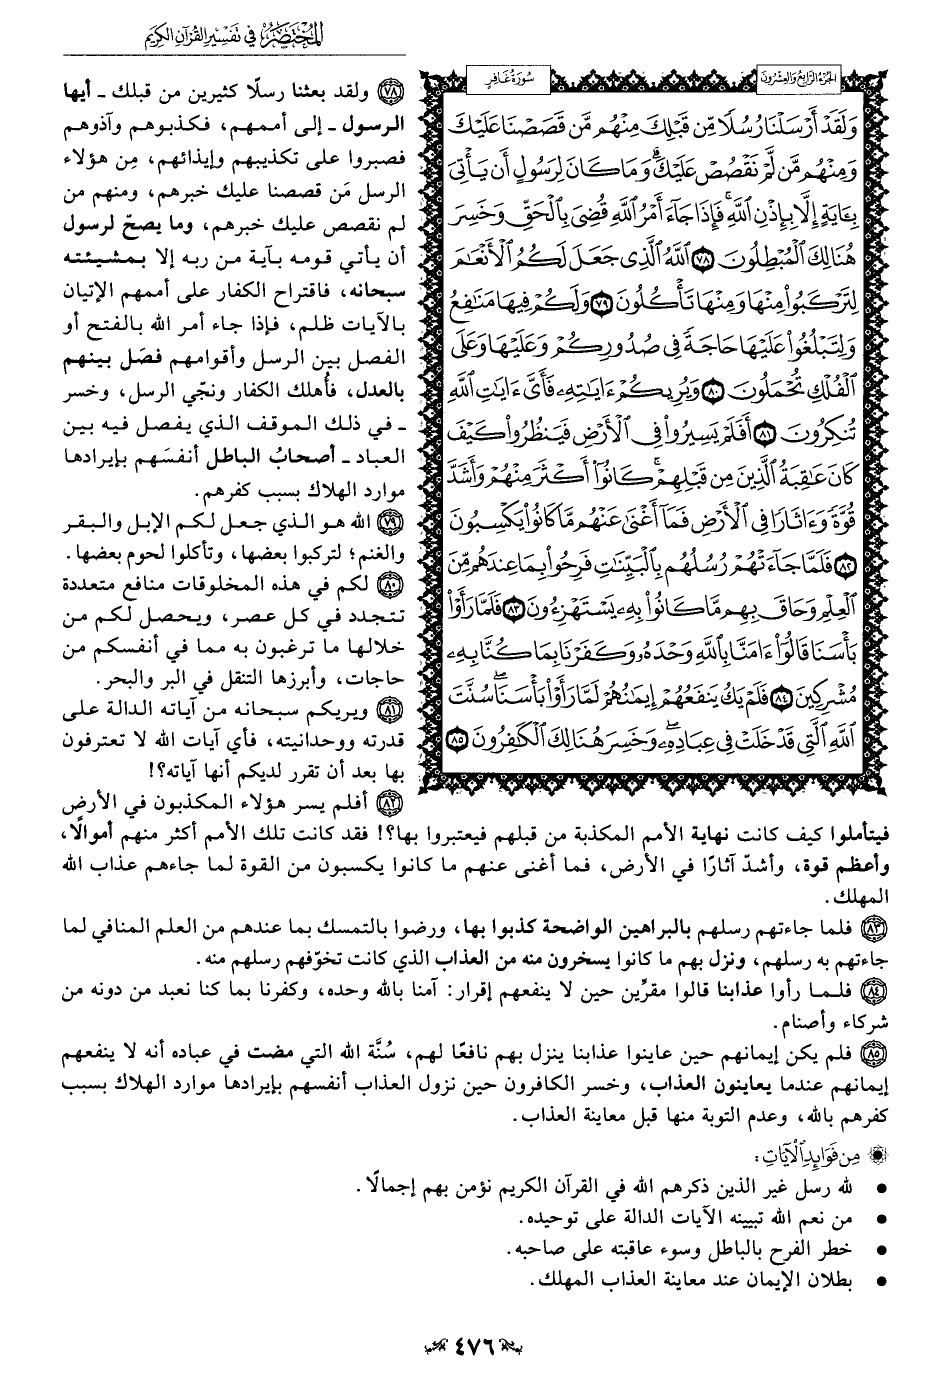 المختصر في تفسير القرآن الكريم
الجزء الرابع والعشرون
سورة غافر
وَلَقَدْ أَرْسَلْنَا رُسُلًا مِّن قَبْلِكَ مِنْهُم مَّن قَصَصْنَا عَلَيْكَ
وَمِنْهُم مَّن لَّمْ نَقْصُصْ عَلَيْكَۗ وَمَا كَانَ لِرَسُولٍ أَن يَأْتِىَ
بِـَٔايَةٍ إِلَّا بِإِذْنِ ٱللَّهِۚ فَإِذَا جَآءَ أَمْرُ ٱللَّهِ قُضِىَ بِٱلْحَقِّ وَخَسِرَ
هُنَالِكَ ٱلْمُبْطِلُونَ ٧٨ ٱللَّهُ ٱلَّذِى جَعَلَ لَكُمُ ٱلْأَنْعَٰمَ
لِتَرْكَبُوا۟ مِنْهَا وَمِنْهَا تَأْكُلُونَ ٧٩ وَلَكُمْ فِيهَا مَنَٰفِعُ
وَلِتَبْلُغُوا۟ عَلَيْهَا حَاجَةً فِى صُدُورِكُمْ وَعَلَيْهَا وَعَلَى
ٱلْفُلْكِ تُحْمَلُونَ ٨٠ وَيُرِيكُمْ ءَايَٰتِهِۦ فَأَىَّ ءَايَٰتِ ٱللَّهِ
تُنكِرُونَ ٨١ أَفَلَمْ يَسِيرُوا۟ فِى ٱلْأَرْضِ فَيَنظُرُوا۟ كَيْفَ
كَانَ عَٰقِبَةُ ٱلَّذِينَ مِن قَبْلِهِمْۚ كَانُوٓا۟ أَكْثَرَ مِنْهُمْ وَأَشَدَّ
قُوَّةً وَءَاثَارًا فِى ٱلْأَرْضِ فَمَآ أَغْنَىٰ عَنْهُم مَّا كَانُوا۟ يَكْسِبُونَ
٨٢ فَلَمَّا جَآءَتْهُمْ رُسُلُهُم بِٱلْبَيِّنَٰتِ فَرِحُوا۟ بِمَا عِندَهُم مِّنَ
ٱلْعِلْمِ وَحَاقَ بِهِم مَّا كَانُوا۟ بِهِۦ يَسْتَهْزِءُونَ ٨٣ فَلَمَّا رَأَوْا۟
بَأْسَنَا قَالُوٓا۟ ءَامَنَّا بِٱللَّهِ وَحْدَهُۥ وَكَفَرْنَا بِمَا كُنَّا بِهِۦ
مُشْرِكِينَ ٨٤ فَلَمْ يَكُ يَنفَعُهُمْ إِيمَٰنُهُمْ لَمَّا رَأَوْا۟ بَأْسَنَاۖ سُنَّتَ
ٱللَّهِ ٱلَّتِى قَدْ خَلَتْ فِى عِبَادِهِۦۖ وَخَسِرَ هُنَالِكَ ٱلْكَٰفِرُونَ ٨٥
٧٨ ولقد بعثنا رسلًا كثيرين من قبلك ـ أيها
الرسول ـ إلى أممهم، فكذبوهم وآذوهم
فصبروا على تكذيبهم وإيذائهم، مِن هؤلاء
الرسل مَن قصصنا عليك خبرهم، ومنهم من
لم نقصص عليك خبرهم، وما يصحّ لرسول
أن يأتي قومه بآية من ربه إلا بمشيئته
سبحانه، فاقتراح الكفار على أممهم الإتيان
بالآيات ظلم، فإذا جاء أمر الله بالفتح أو
الفصل بين الرسل وأقوامهم فصَل بينهم
بالعدل، فأُهلك الكفار ونجّي الرسل، وخسر
ـ في ذلك الموقف الذي يفصل فيه بين
العباد ـ أصحابُ الباطل أنفسَهم بإيرادها
موارد الهلاك بسبب كفرهم.
٧٩ الله هو الذي جعل لكم الإبل والبقر
والغنم؛ لتركبوا بعضها، وتأكلوا لحوم بعضها.
٨٠ لكم في هذه المخلوقات منافع متعددة
تتجدد في كل عصر، ويحصل لكم من
خلالها ما ترغبون به مما في أنفسكم من
حاجات، وأبرزها التنقل في البر والبحر.
٨١ ويريكم سبحانه من آياته الدالة على
قدرته ووحدانيته، فأي آيات الله لا تعترفون
بها بعد أن تقرر لديكم أنها آياته؟!
٨٢ أفلم يسر هؤلاء المكذبون في الأرض
فيتأملوا كيف كانت نهاية الأمم المكذبة من قبلهم فيعتبروا بها؟! فقد كانت تلك الأمم أكثر منهم أموالًا،
وأعظم قوة، وأشدّ آثارًا في الأرض، فما أغنى عنهم ما كانوا يكسبون من القوة لما جاءهم عذاب الله
المهلك.
٨٣ فلما جاءتهم رسلهم بالبراهين الواضحة كذبوا بها، ورضوا بالتمسك بما عندهم من العلم المنافي لما
جاءتهم به رسلهم، ونزل بهم ما كانوا يسخرون منه من العذاب الذي كانت تخوّفهم رسلهم منه.
٨٤ فلما رأوا عذابنا قالوا مقرِّين حين لا ينفعهم إقرار: آمنا بالله وحده، وكفرنا بما كنا نعبد من دونه من
شركاء وأصنام.
٨٥ فلم يكن إيمانهم حين عاينوا عذابنا ينزل بهم نافعًا لهم، سُنَّة الله التي مضت في عباده أنه لا ينفعهم
إيمانهم عندما يعاينون العذاب، وخسر الكافرون حين نزول العذاب أنفسهم بإيرادها موارد الهلاك بسبب
كفرهم بالله، وعدم التوبة منها قبل معاينة العذاب.
من فوائد الآيات:
• لله رسل غير الذين ذكرهم الله في القرآن الكريم نؤمن بهم إجمالًا.
• من نعم الله تبيينه الآيات الدالة على توحيده.
• خطر الفرح بالباطل وسوء عاقبته على صاحبه.
• بطلان الإيمان عند معاينة العذاب المهلك.
٤٧٦